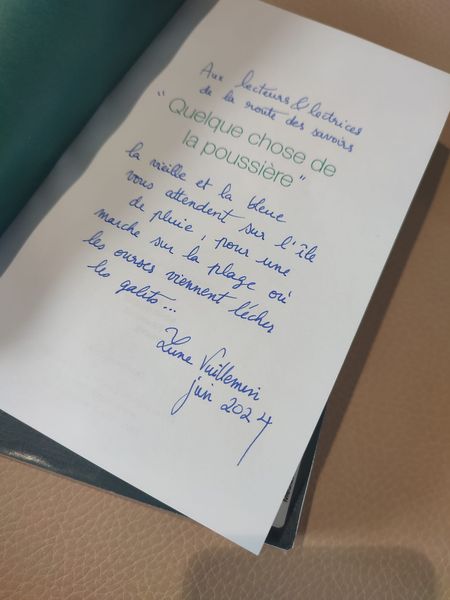 Aux lecteurs & lectrices
de la route des savoirs
" Quelque chose de
la poussière "
la vieille et la bleue
vous attendent sur l'île
de pluie, pour une
marche sur la plage où
les ourses viennent lécher
les galets...
Lune Vuillemin
juin 2024